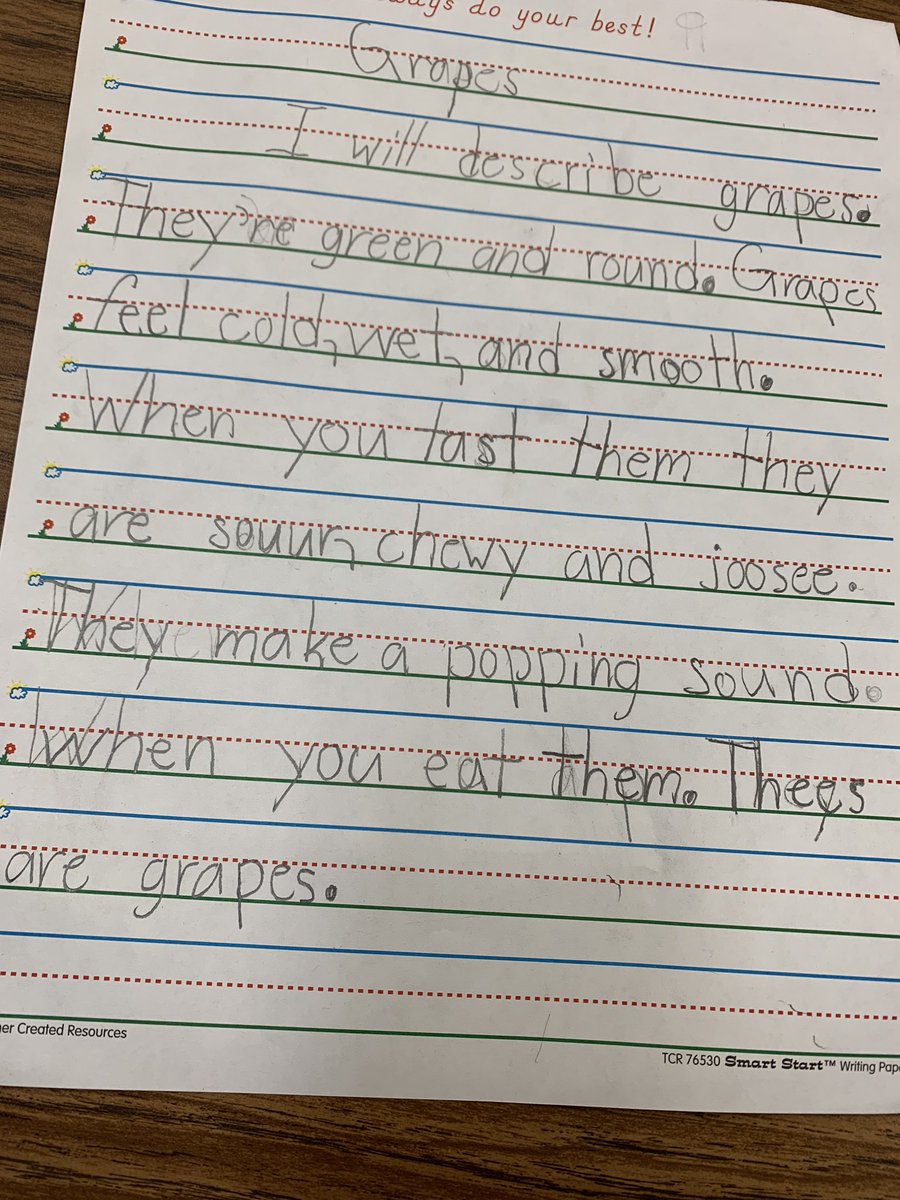 do your best!
Grapes
I will describe grapes.
They're green and round. Grapes
feel cold, wet, and smooth.
When you tast them they
are souur, chewy and joosee.
They make a popping sound.
When you eat them. Thees
are grapes.
er Created Resources
TCR 76530 Smart Start™ Writing Pap